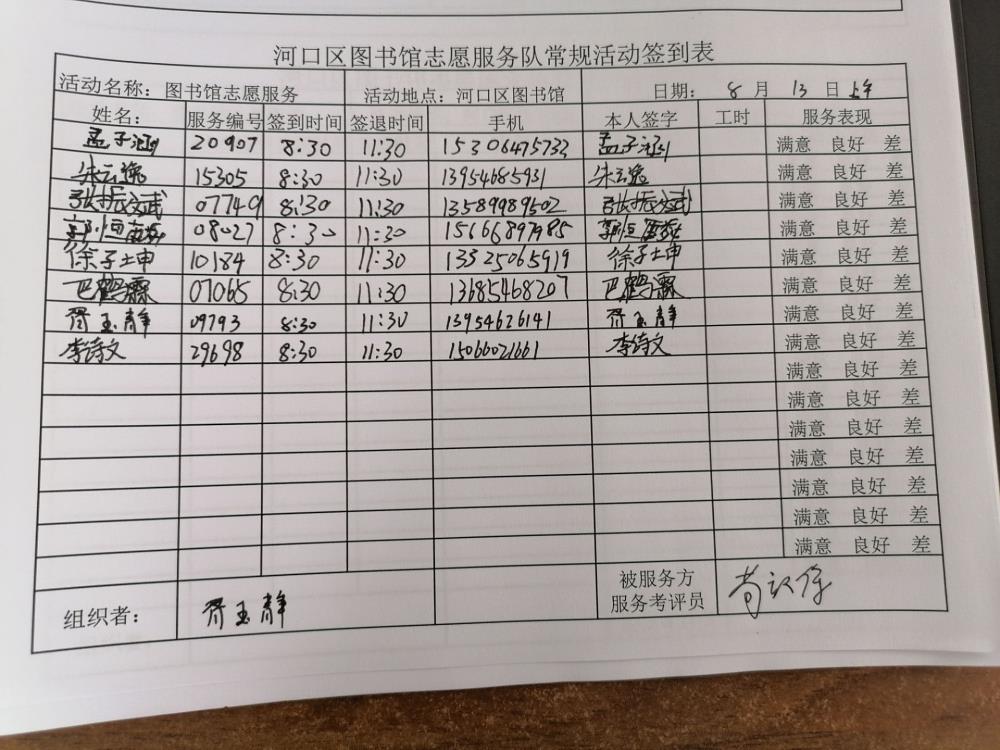 河口区图书馆志愿服务队常规活动签到表
活动名称：图书馆志愿服务 活动地点：河口区图书馆 日期： 8 月 13 日 上午
姓名： 服务编号 签到时间 签退时间 手机 本人签字 工时 服务表现
孟子涵 20907 8:30 11:30 15306475733 孟子涵 满意 良好 差
朱云逸 15305 8:30 11:30 13954685931 朱云逸 满意 良好 差
张振文武 07749 8:30 11:30 13589989502 张振文武 满意 良好 差
郭恒 08027 8:30 11:30 15666897985 郭恒 满意 良好 差
徐子坤 10184 8:30 11:30 13325065919 徐子坤 满意 良好 差
巴鹤霖 07065 8:30 11:30 13685468207 巴鹤霖 满意 良好 差
胥玉静 09793 8:30 11:30 13954626141 胥玉静 满意 良好 差
李诗文 29698 8:30 11:30 15066021661 李诗文 满意 良好 差
满意 良好 差
满意 良好 差
满意 良好 差
满意 良好 差
满意 良好 差
满意 良好 差
满意 良好 差
组织者： 胥玉静 被服务方
服务考评员